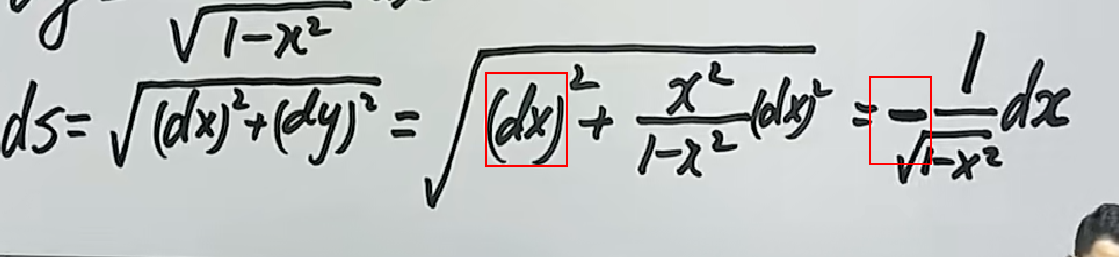 √(1-x²)
ds = √((dx)² + (dy)²) = √((dx)² + x²/(1-x²) (dx)²) = - 1/√(1-x²) dx